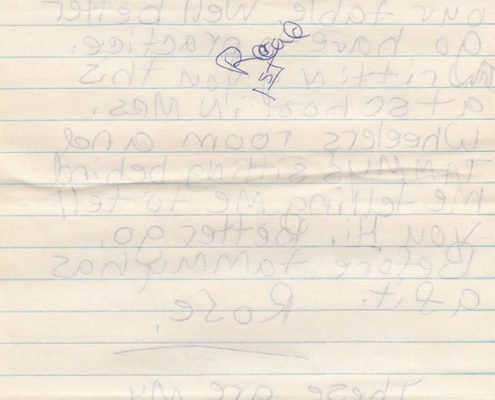 our table well better
go have practice.
you this
at school in Mrs.
Wheelers room and
sitting behind
me telling me to tell
you Hi. Better go,
Before tammy has
a fit. Rose.
These are my